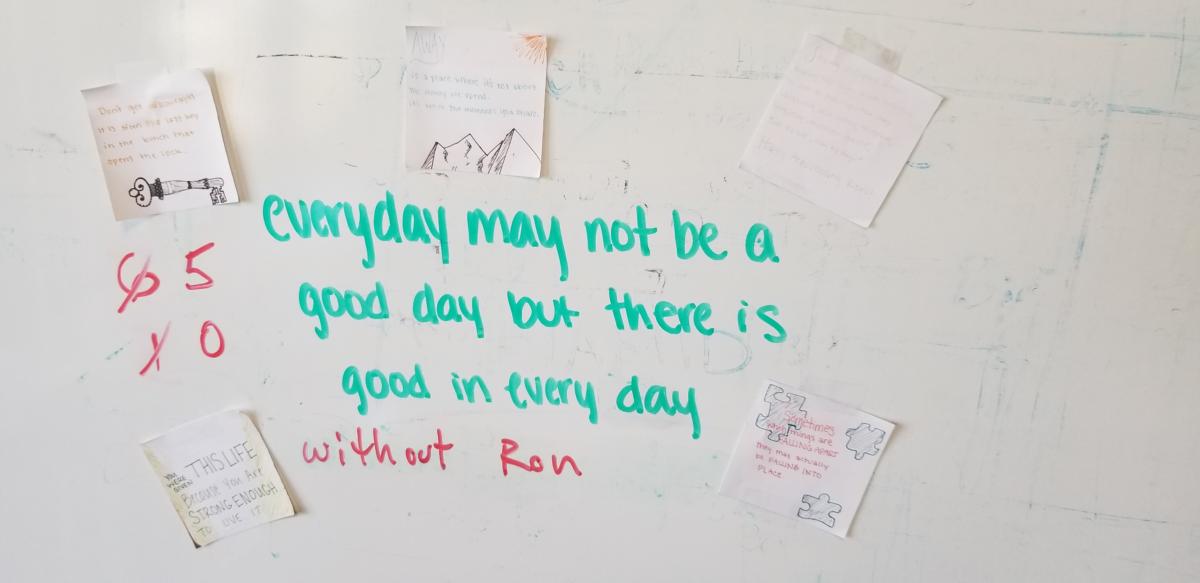 Don't get discouraged
it is often the last key
in the bunch that
opens the lock.
AWAY
is a place where it's not about
the money we spend.
it's about the moments you share.
everyday may not be a
good day but there is
good in every day
without Ron
6 5
1 0
YOU WERE GIVEN THIS LIFE
Because You Are
STRONG ENOUGH
TO LIVE IT
Sometimes
when things are
FALLING APART
they may actually
be FALLING INTO
PLACE